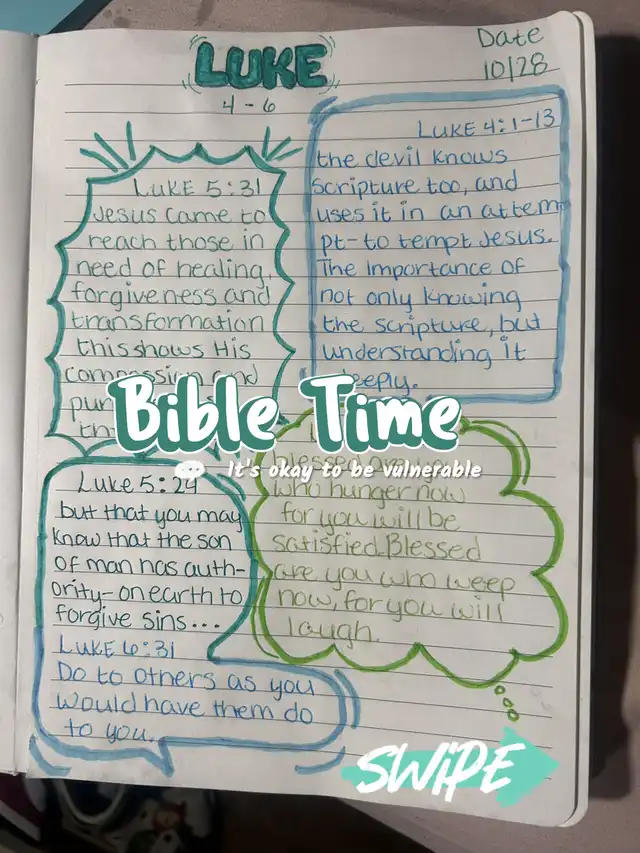 LUKE
4 - 6
Date
10/28
Luke 5:31
Jesus came to
reach those in
need of healing,
forgiveness and
transformation
this shows His
compassion and
Luke 4:1-13
the devil knows
scripture too, and
uses it in an attem
pt-to tempt Jesus.
The importance of
not only knowing
the scripture, but
understanding it
deeply.
Bible Time
It's okay to be vulnerable
who hunger now
for you will be
satisfied. Blessed
are you who weep
now, for you will
laugh.
Luke 5:24
but that you may
know that the son
of man has auth-
ority-on earth to
forgive sins...
Luke 6:31
Do to others as you
would have them do
to you.
SWIPE